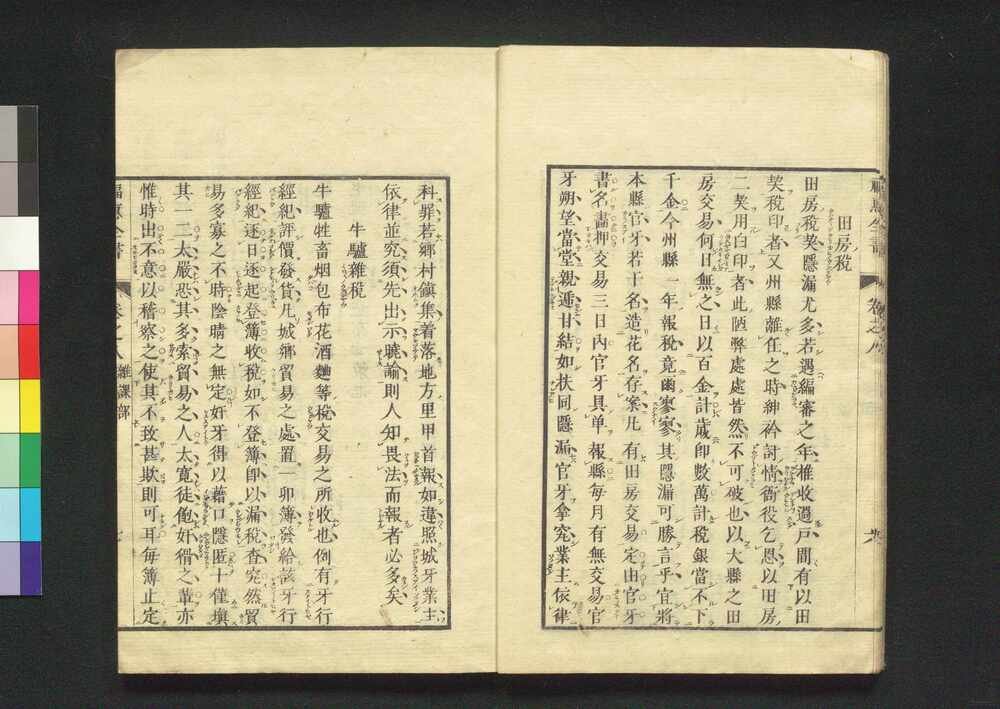 田房稅
田房稅契隱漏尤多若遇編審之年推收過戶間有以田
契稅印者又州縣離任之時紳衿討情衙役乞恩以田房
二契用白印者此陋弊處處皆然不可破也以大縣之田
房交易何日無之日以百金計歲卽數萬計稅銀當不下
千金今州縣一年報稅竟凾寥寥其隱漏可勝言乎宜將
本縣官牙若干名造花名存案凡有田房交易定由官牙
書名畵押交易三日內官牙具单報縣每月有無交易官
牙朔望當堂親遞甘結如扶同隱漏官牙拿究業主依律
科罪若鄉村鎭集着落地方里甲首報如違照城牙業主
依律並究須先出示曉諭則人知畏法而報者必多矣
牛驢雜稅
牛驢牲畜烟包布花酒麯等稅交易之所收也例有牙行
經紀評價發貨凡城鄉貿易之處置一卯簿發給該牙行
經紀逐日逐起登簿收稅如不登簿卽以漏稅查究然貿
易多寡之不時陰晴之無定奸牙得以藉口隱匿十僅塡
其一二太嚴恐其多索貿易之人太寬徒飽奸猾之輩亦
惟時出不意以稽察之使其不致甚欺則可耳每簿止定
卷之八
雜課部
七